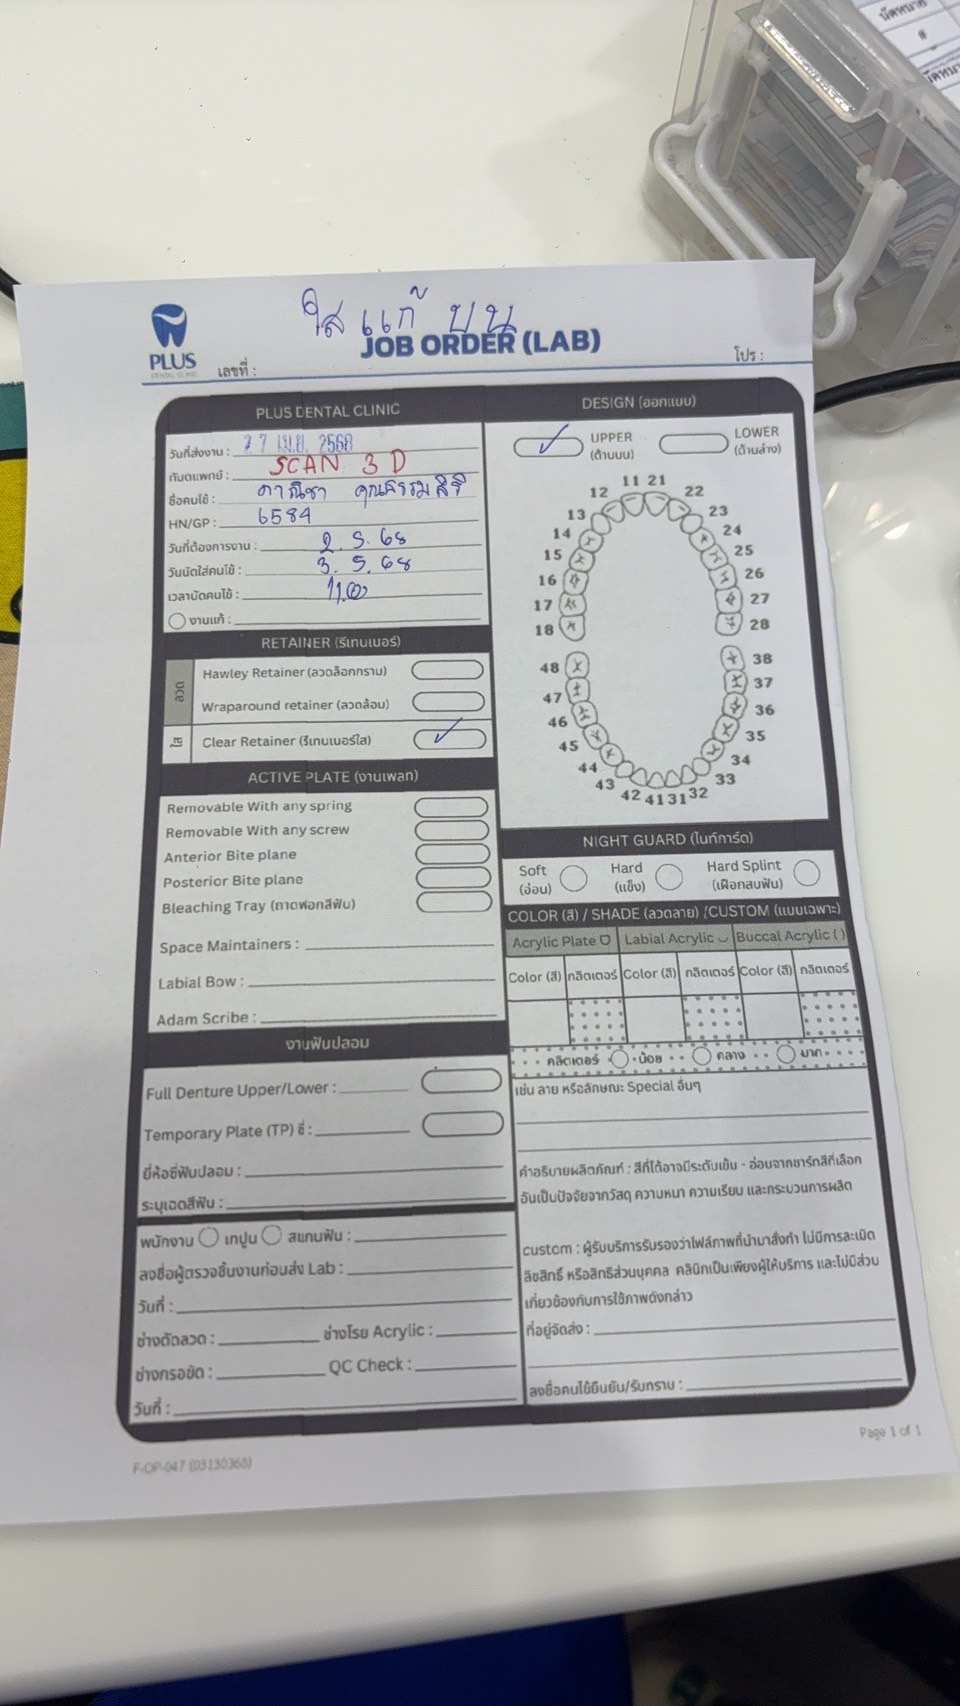 ใส แก้ บน
PLUS
DENTAL CLINIC
JOB ORDER (LAB)
เลขที่ :
โปร :
PLUS DENTAL CLINIC
วันที่ส่งงาน : 27 เม.ย. 2568
ทันตแพทย์ : SCAN 3 D
ชื่อคนไข้ : ภาณิชา คุณธรรมสิริ
HN/GP : 6584
วันที่ต้องการงาน : 2. 5. 68
วันนัดใส่คนไข้ : 3. 5. 68
เวลานัดคนไข้ : 11.00
งานแก้ :
RETAINER (รีเทนเนอร์)
ลวด
Hawley Retainer (ลวดล็อกกราม)
Wraparound retainer (ลวดล้อม)
ใส
Clear Retainer (รีเทนเนอร์ใส)
ACTIVE PLATE (งานเพลท)
Removable With any spring
Removable With any screw
Anterior Bite plane
Posterior Bite plane
Bleaching Tray (ถาดฟอกสีฟัน)
Space Maintainers :
Labial Bow :
Adam Scribe :
งานฟันปลอม
Full Denture Upper/Lower :
Temporary Plate (TP) ซี่ :
ยี่ห้อซี่ฟันปลอม :
ระบุเฉดสีฟัน :
พนักงาน เทปูน สแกนฟัน :
ลงชื่อผู้ตรวจชิ้นงานก่อนส่ง Lab :
วันที่ :
ช่างดัดลวด : ช่างโรย Acrylic :
ช่างกรอขัด : QC Check :
วันที่ :
DESIGN (ออกแบบ)
UPPER
(ด้านบน)
LOWER
(ด้านล่าง)
11 21
12 22
13 23
14 24
15 25
16 26
17 27
18 28
48 38
47 37
46 36
45 35
44 34
43 33
42 41 31 32
NIGHT GUARD (ไนท์การ์ด)
Soft
(อ่อน)
Hard
(แข็ง)
Hard Splint
(เฝือกสบฟัน)
COLOR (สี) / SHADE (ลวดลาย) /CUSTOM (แบบเฉพาะ)
Acrylic Plate Labial Acrylic Buccal Acrylic ( )
Color (สี) กลิตเตอร์ Color (สี) กลิตเตอร์ Color (สี) กลิตเตอร์
กลิตเตอร์ น้อย กลาง มาก
เช่น ลาย หรือลักษณะ Special อื่นๆ
คำอธิบายผลิตภัณฑ์ : สีที่ได้อาจมีระดับเข้ม - อ่อนจากชาร์ทสีที่เลือก
อันเป็นปัจจัยจากวัสดุ ความหนา ความเรียบ และกระบวนการผลิต
custom : ผู้รับบริการรับรองว่าไฟล์ภาพที่นำมาสั่งทำ ไม่มีการละเมิด
ลิขสิทธิ์ หรือสิทธิส่วนบุคคล คลินิกเป็นเพียงผู้ให้บริการ และไม่มีส่วน
เกี่ยวข้องกับการใช้ภาพดังกล่าว
ที่อยู่จัดส่ง :
ลงชื่อคนไข้ยืนยัน/รับทราบ :
F-OP-047 (03130368)
Page 1 of 1
นัดหมาย